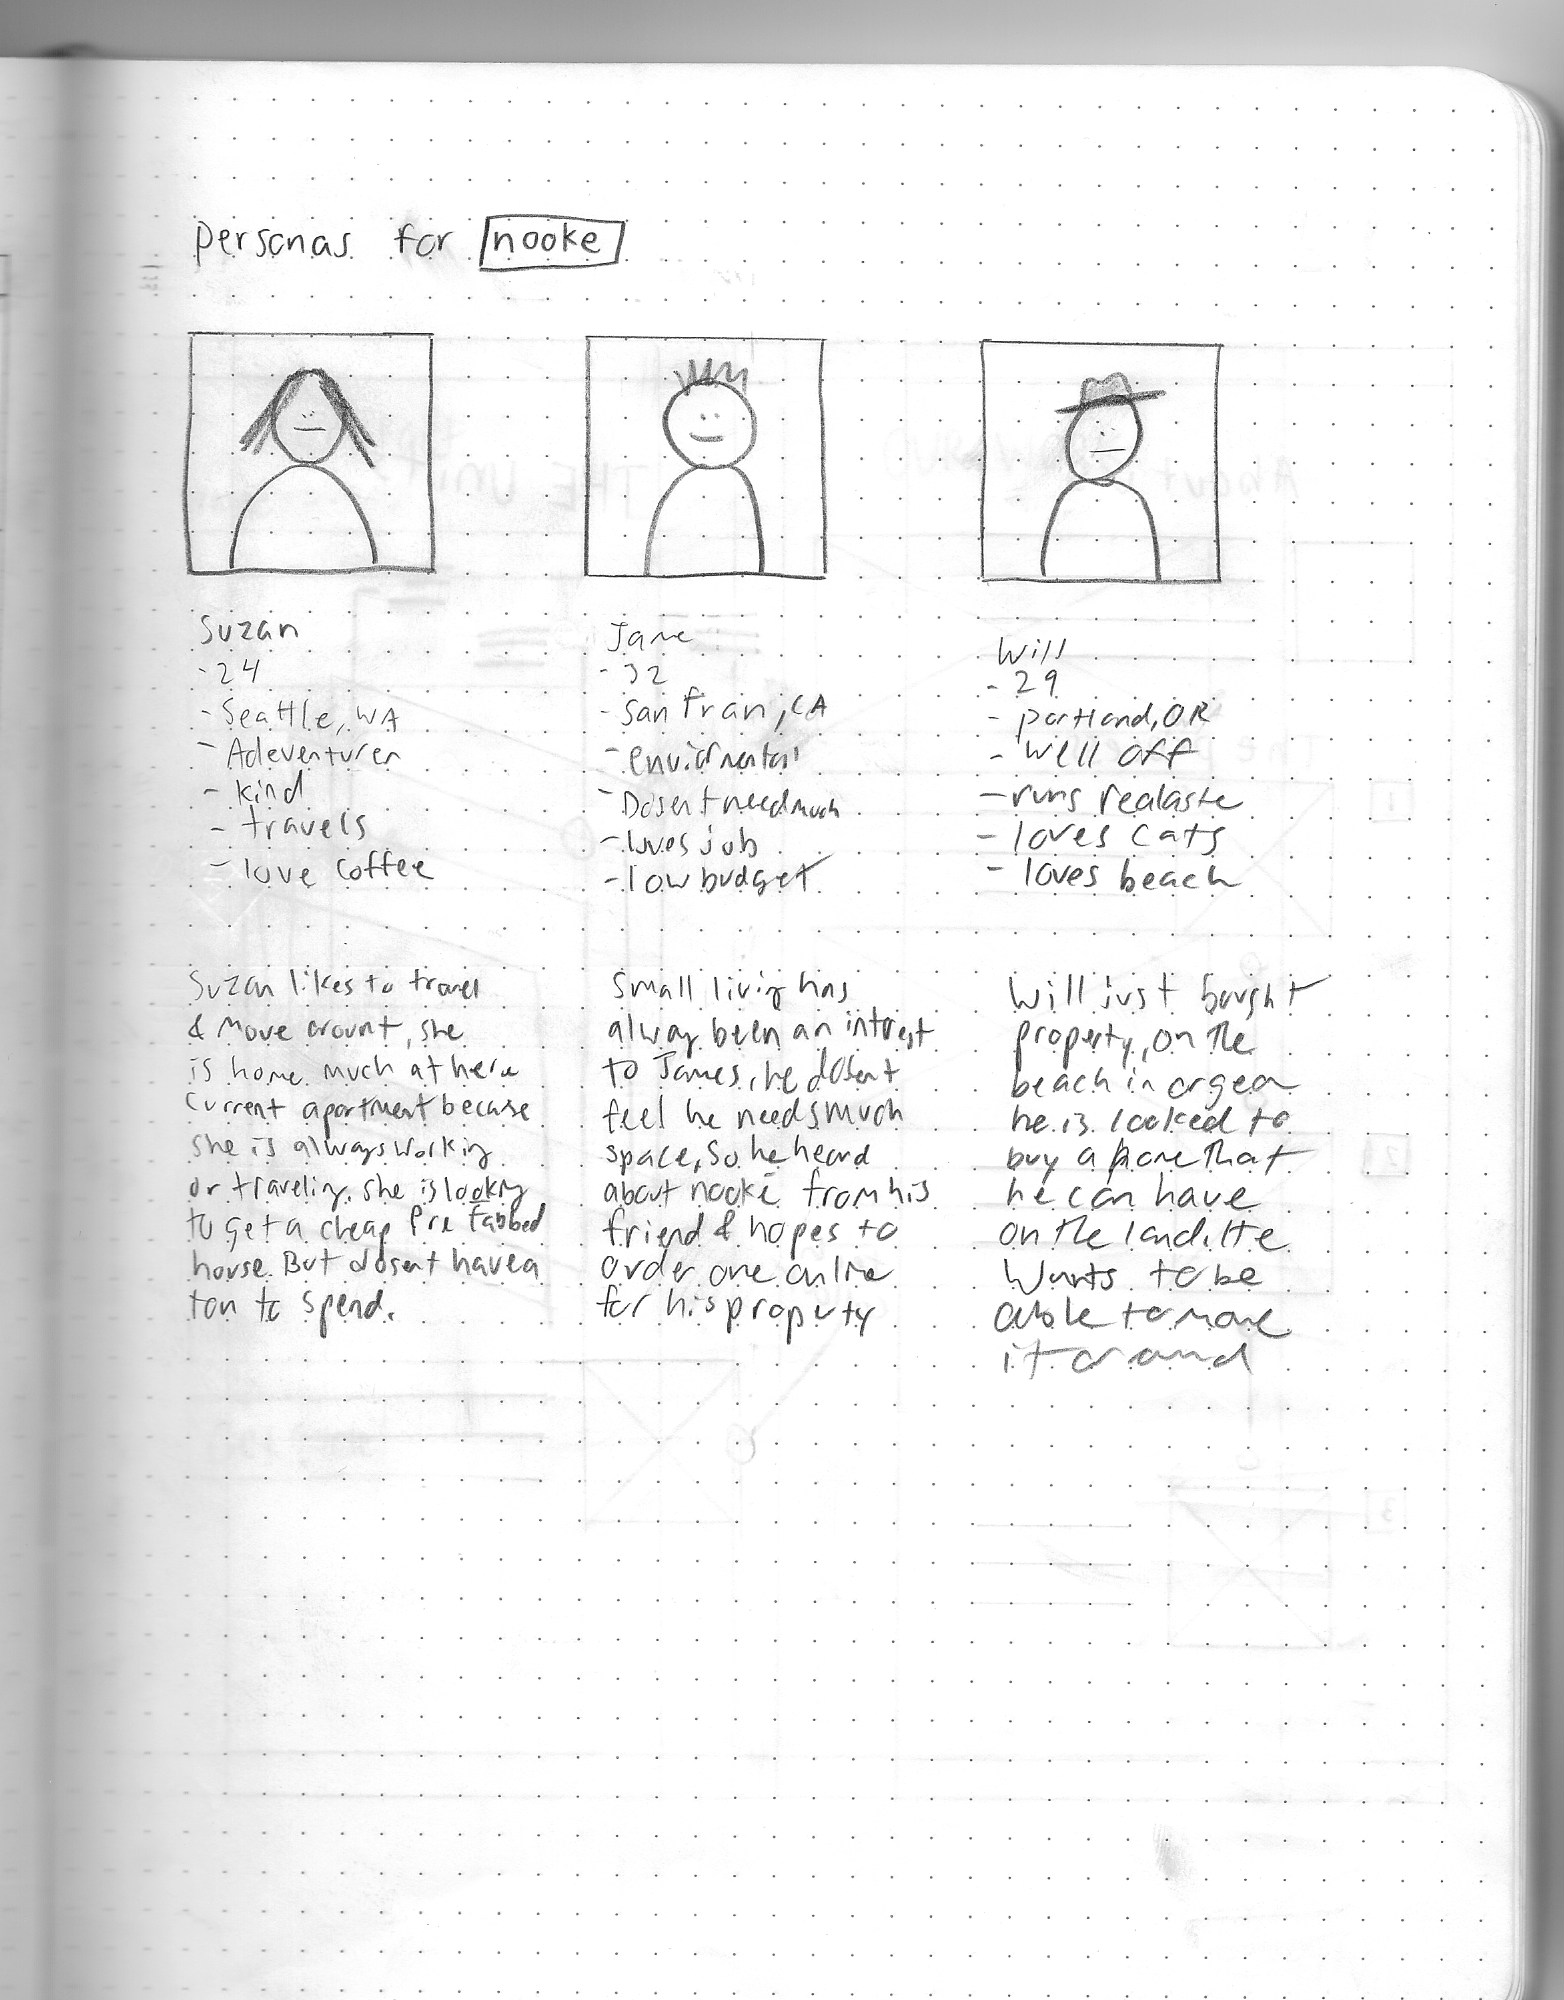 personas for nooke
Suzan
- 24
- Seattle, WA
- Adeventurer
- kind
- travels
- love coffee
Suzan likes to travel
& move arount, she
is home much at here
current apartment because
she is always working
or traveling. she is looking
to get a cheap Pre fabbed
house. But dosent have a
ton to spend.
Jame
- 32
- San Fran, CA
- enviormental
- Dosent need much
- loves job
- low budget
Small living has
alway been an intrest
to James, he dosent
feel he needs much
space, so he heard
about nooke from his
friend & hopes to
order one online
for his property
Will
- 29
- portland, OR
- well off
- runs realaste
- loves cats
- loves beach
Will just bought
property, on the
beach in orgeon
he is looked to
buy a that
he can have
on the land. He
Wants to be
able to move
it around
About
THE Unit
The
1
2
3